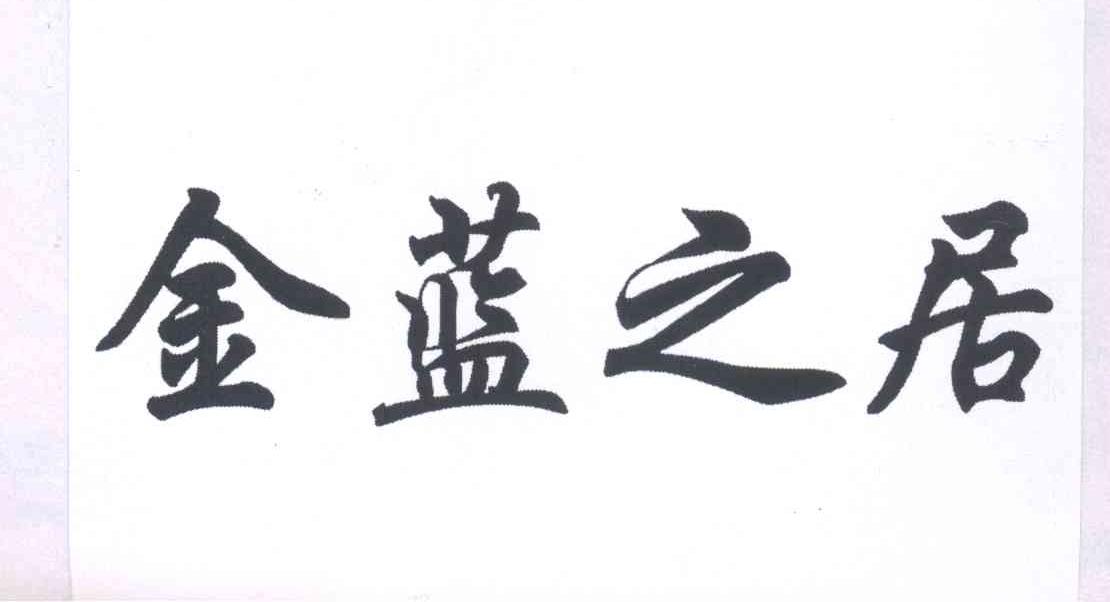 金蓝之居